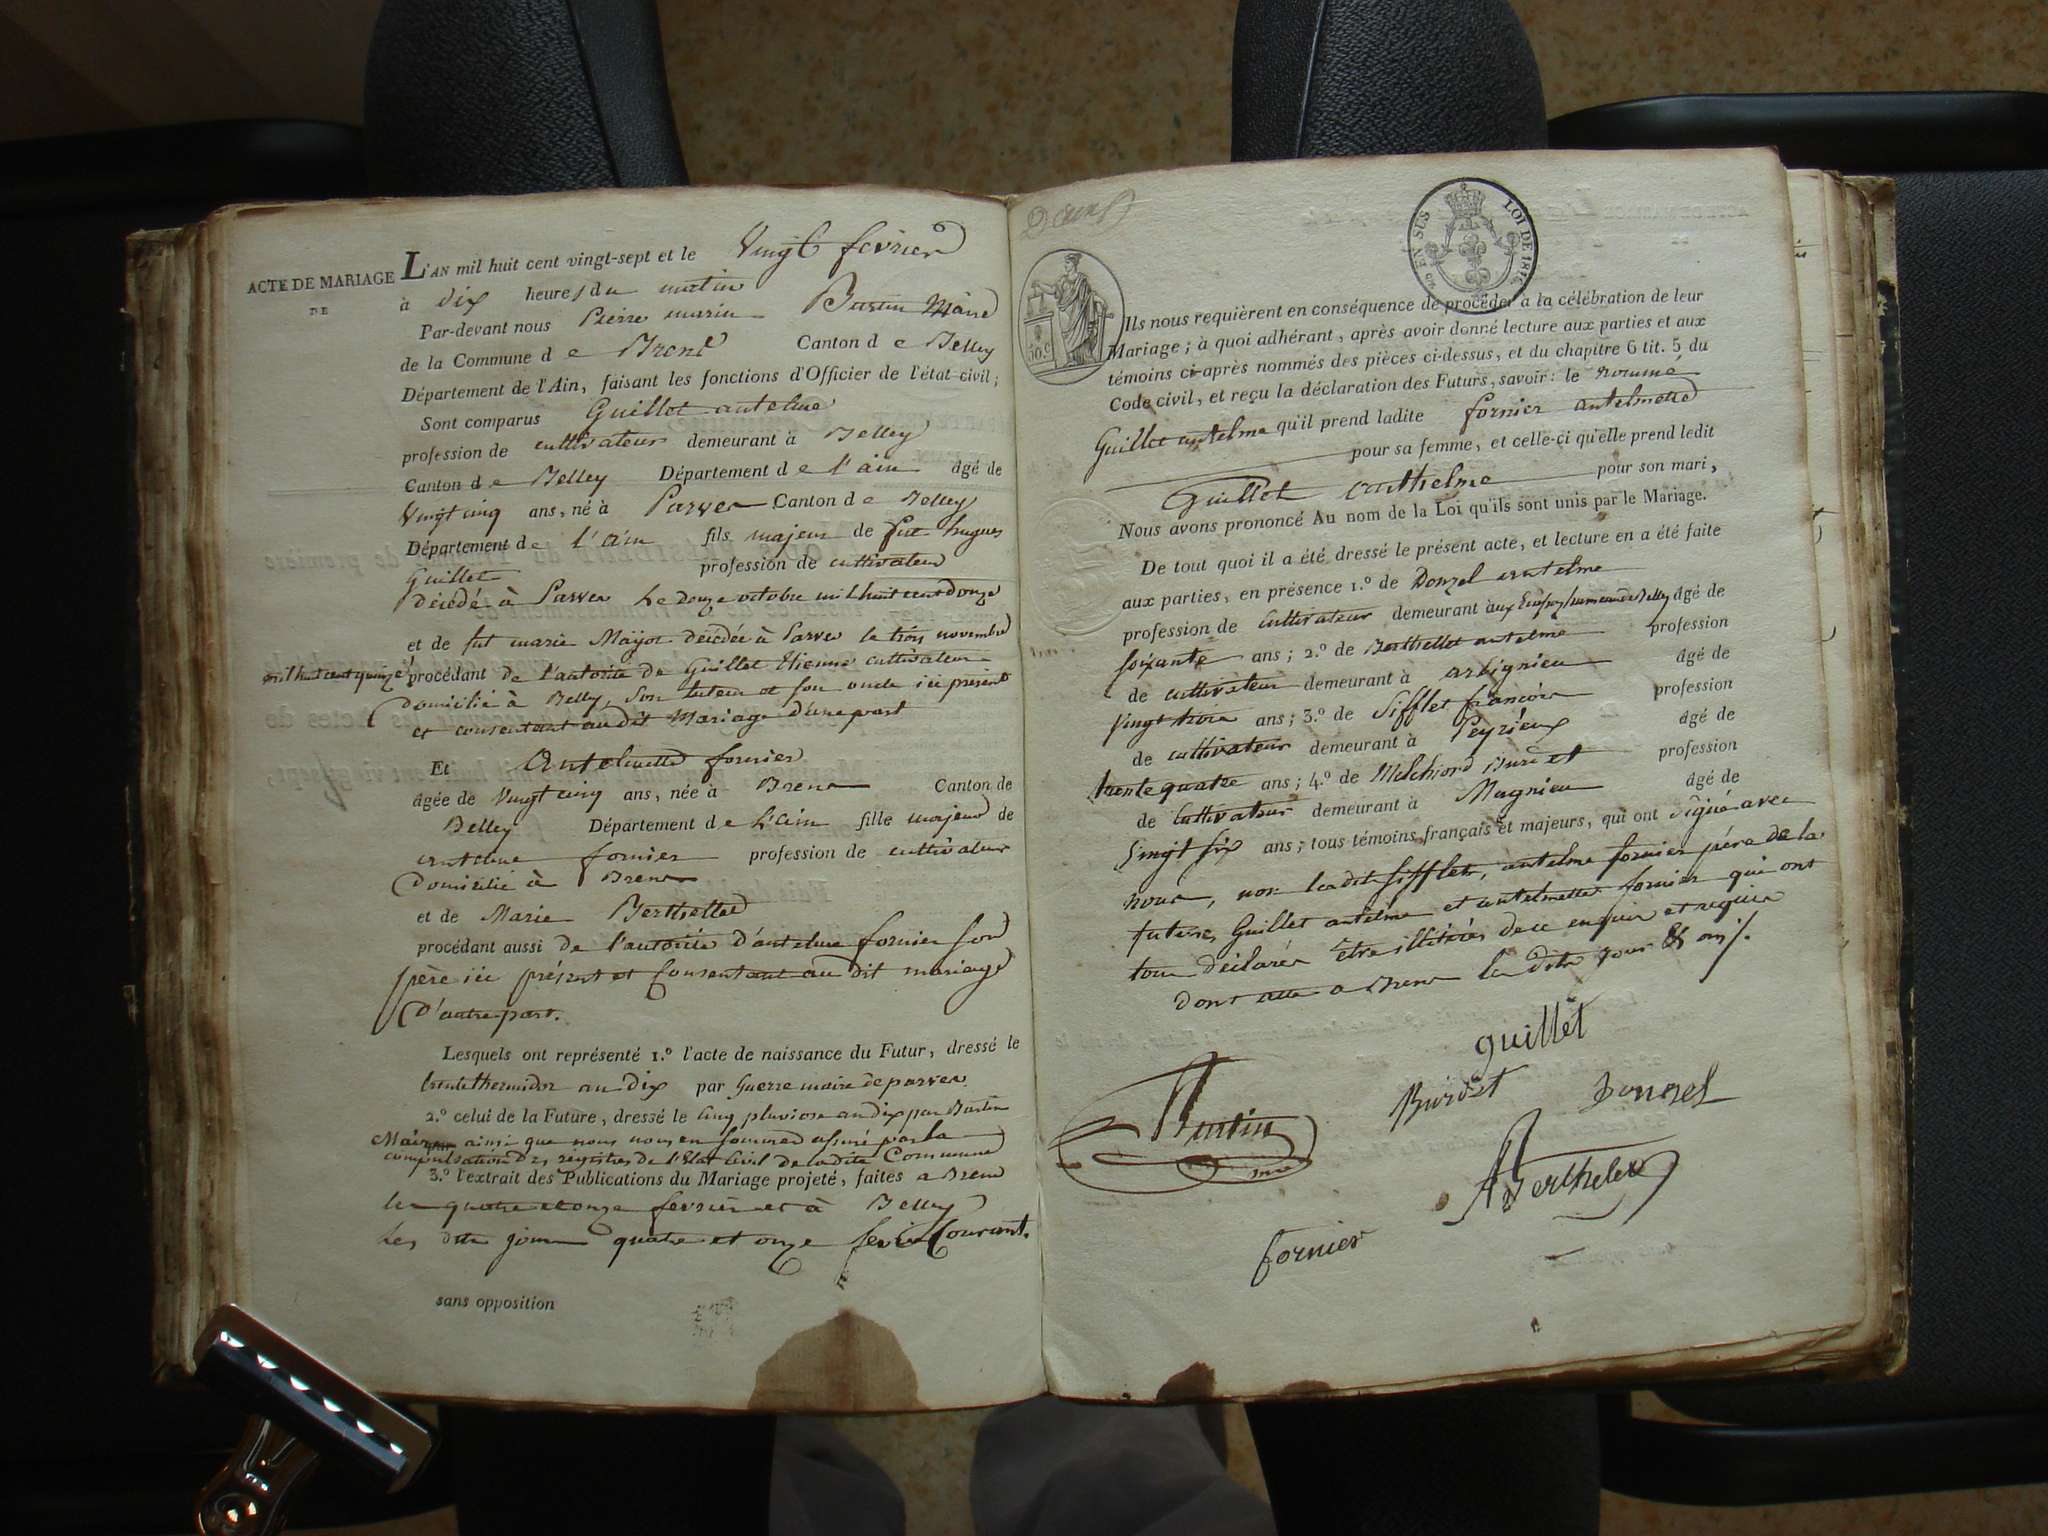 ACTE DE MARIAGE
DE
L'AN mil huit cent vingt-sept et le Vingt fevrier
à dix heures du matin
Par-devant nous Pierre marin Burtin Maire
de la Commune d e Brens Canton d e Belley
Département de l'Ain, faisant les fonctions d'Officier de l'état-civil;
Sont comparus Guillot antelme
profession de cultivateur demeurant à Belley
Canton d e Belley Département d e l'ain âgé de
Vingt cinq ans, né à Parves Canton d e Belley
Département d e l'ain fils majeur de fut hugues
Guillet profession de cultivateur
décédé à Parves le douze octobre mil huit cent douze
et de fut marie Mayot décédée à Parves le trois novembre
mil huit cent quinze procédant de l'autorité de Guillet Etienne cultivateur
domicilié à Belley, son tuteur et son oncle ici present
et consentant au dit Mariage d'une part
Et Antelmette fornier
âgée de Vingt cinq ans, née à Brens Canton de
Belley Département d e l'ain fille majeure de
antelme fornier profession de cultivateur
Domicilié à Brens
et de Marie Berthellet
procédant aussi de l'autorité d'antelme fornier son
père ici présent et Consentant au dit mariage
D'autre part.
Lesquels ont représenté 1.º l'acte de naissance du Futur, dressé le
trente thermidor an dix par Guerre maire de parves
2.º celui de la Future, dressé le cinq pluviose an dix par Burtin
Maire ainsi que nous nous en sommes assuré par la
compulsation des registres de l'Etat Civil de ladite Commune
3.º l'extrait des Publications du Mariage projeté, faites a Brens
les quatre et onze fevrier et à Belley
les dits jours quatre et onze fevrier Courant.
sans opposition
30 C
EN SUS LOI DE 1816
Ils nous requièrent en conséquence de procéder à la célébration de leur
Mariage; à quoi adhérant, après avoir donné lecture aux parties et aux
témoins ci-après nommés des pièces ci-dessus, et du chapitre 6 tit. 5 du
Code civil, et reçu la déclaration des Futurs, savoir: le nommé
Guillet antelme qu'il prend ladite fornier antelmette
pour sa femme, et celle-ci qu'elle prend ledit
Guillet anthelme pour son mari,
Nous avons prononcé Au nom de la Loi qu'ils sont unis par le Mariage.
De tout quoi il a été dressé le présent acte, et lecture en a été faite
aux parties, en présence 1.º de Donzel antelme
profession de cultivateur demeurant aux de Belley âgé de
soixante ans; 2.º de Berthellet antelme profession
de cultivateur demeurant à arbignieu âgé de
Vingt trois ans; 3.º de Sifflet francois profession
de cultivateur demeurant à Peyrieux âgé de
trente quatre ans; 4.º de Melchiord Buret profession
de Cultivateur demeurant à Magnieu âgé de
Vingt six ans; tous témoins français et majeurs, qui ont signé avec
nous, non ledit Sifflet, antelme fornier père de la
future, Guillet antelme et antelmette fornier qui ont
tous déclarés être illitérés de ce enquis et requis
dont acte a Brens les dits jour & an
guillet
Burtin
Buret Donzel
ABerthelet
fornier